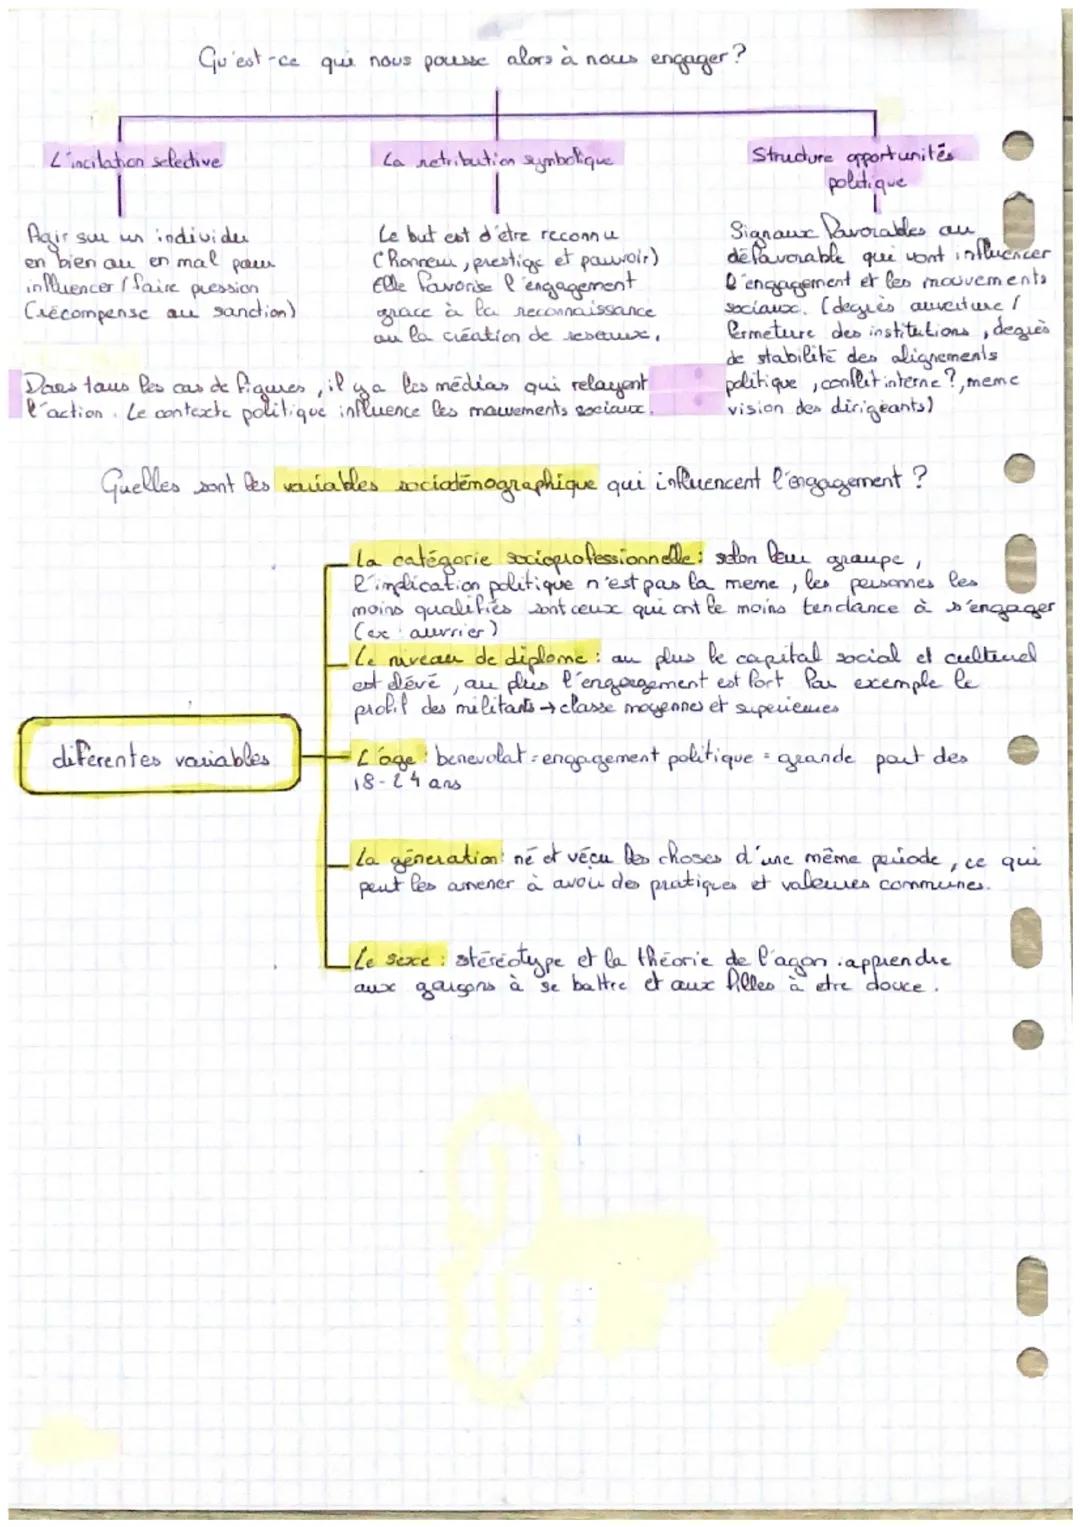 Qu'est-ce qui nous pousse alors à nous engager?
L'incitation selective
Agir sur un individu
en bien ou en mal pour
influencer / faire pression
(récompense ou sanction)
La retribution symbolique
Le but est d'être reconnu
(honneur, prestige et pouvoir)
Elle favorise l'engagement
grace à la reconnaissance
ou la création de reseaux.
Structure opportunités
politique
Signaux favorables ou
défavorable qui vont influencer
l'engagement et les mouvements
sociaux. (degrès ouverture /
fermeture des institutions, degrès
de stabilité des alignements
politique, conflit interne?, meme
vision des dirigeants)
Dans tous les cas de figures, il y a les médias qui relayent
l'action. Le contexte politique influence les mouvements sociaux.
Quelles sont les variables sociodémographique qui influencent l'engagement ?
diferentes variables
La catégorie socioprofessionnelle : selon leur groupe,
l'implication politique n'est pas la meme, les personnes les
moins qualifiés sont ceux qui ont le moins tendance à s'engager
(ex : ouvrier)
Le niveau de diplome : au plus le capital social et culturel
est élevé, au plus l'engagement est fort Par exemple le
profil des militants → classe moyennes et superieures
L'age : benevolat = engagement politique = grande part des
18-24 ans
La géneration : né et vécu les choses d'une même période, ce qui
peut les amener à avoir des pratiques et valeures communes.
Le sexe : stéréotype et la théorie de l'agon : apprendre
aux garçons à se battre et aux filles à etre douce.